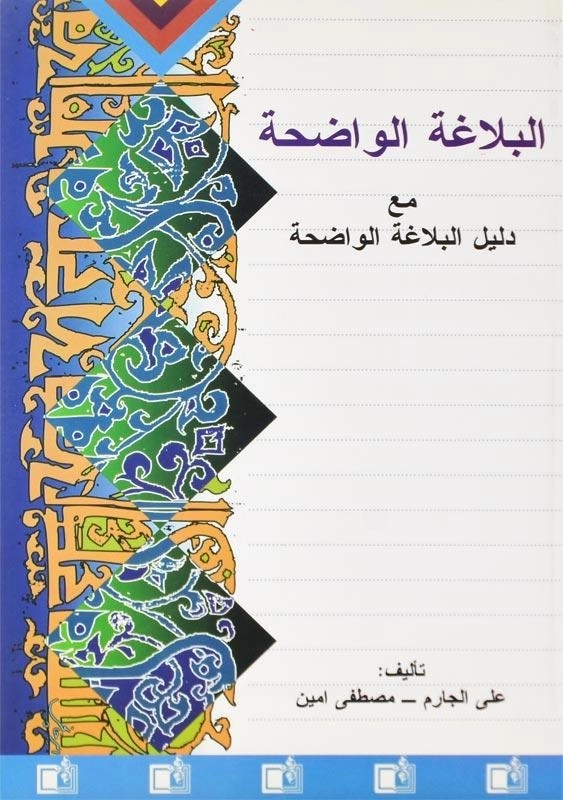 البلاغة الواضحة
مع
دليل البلاغة الواضحة
تأليف:
على الجارم ــ مصطفى امين